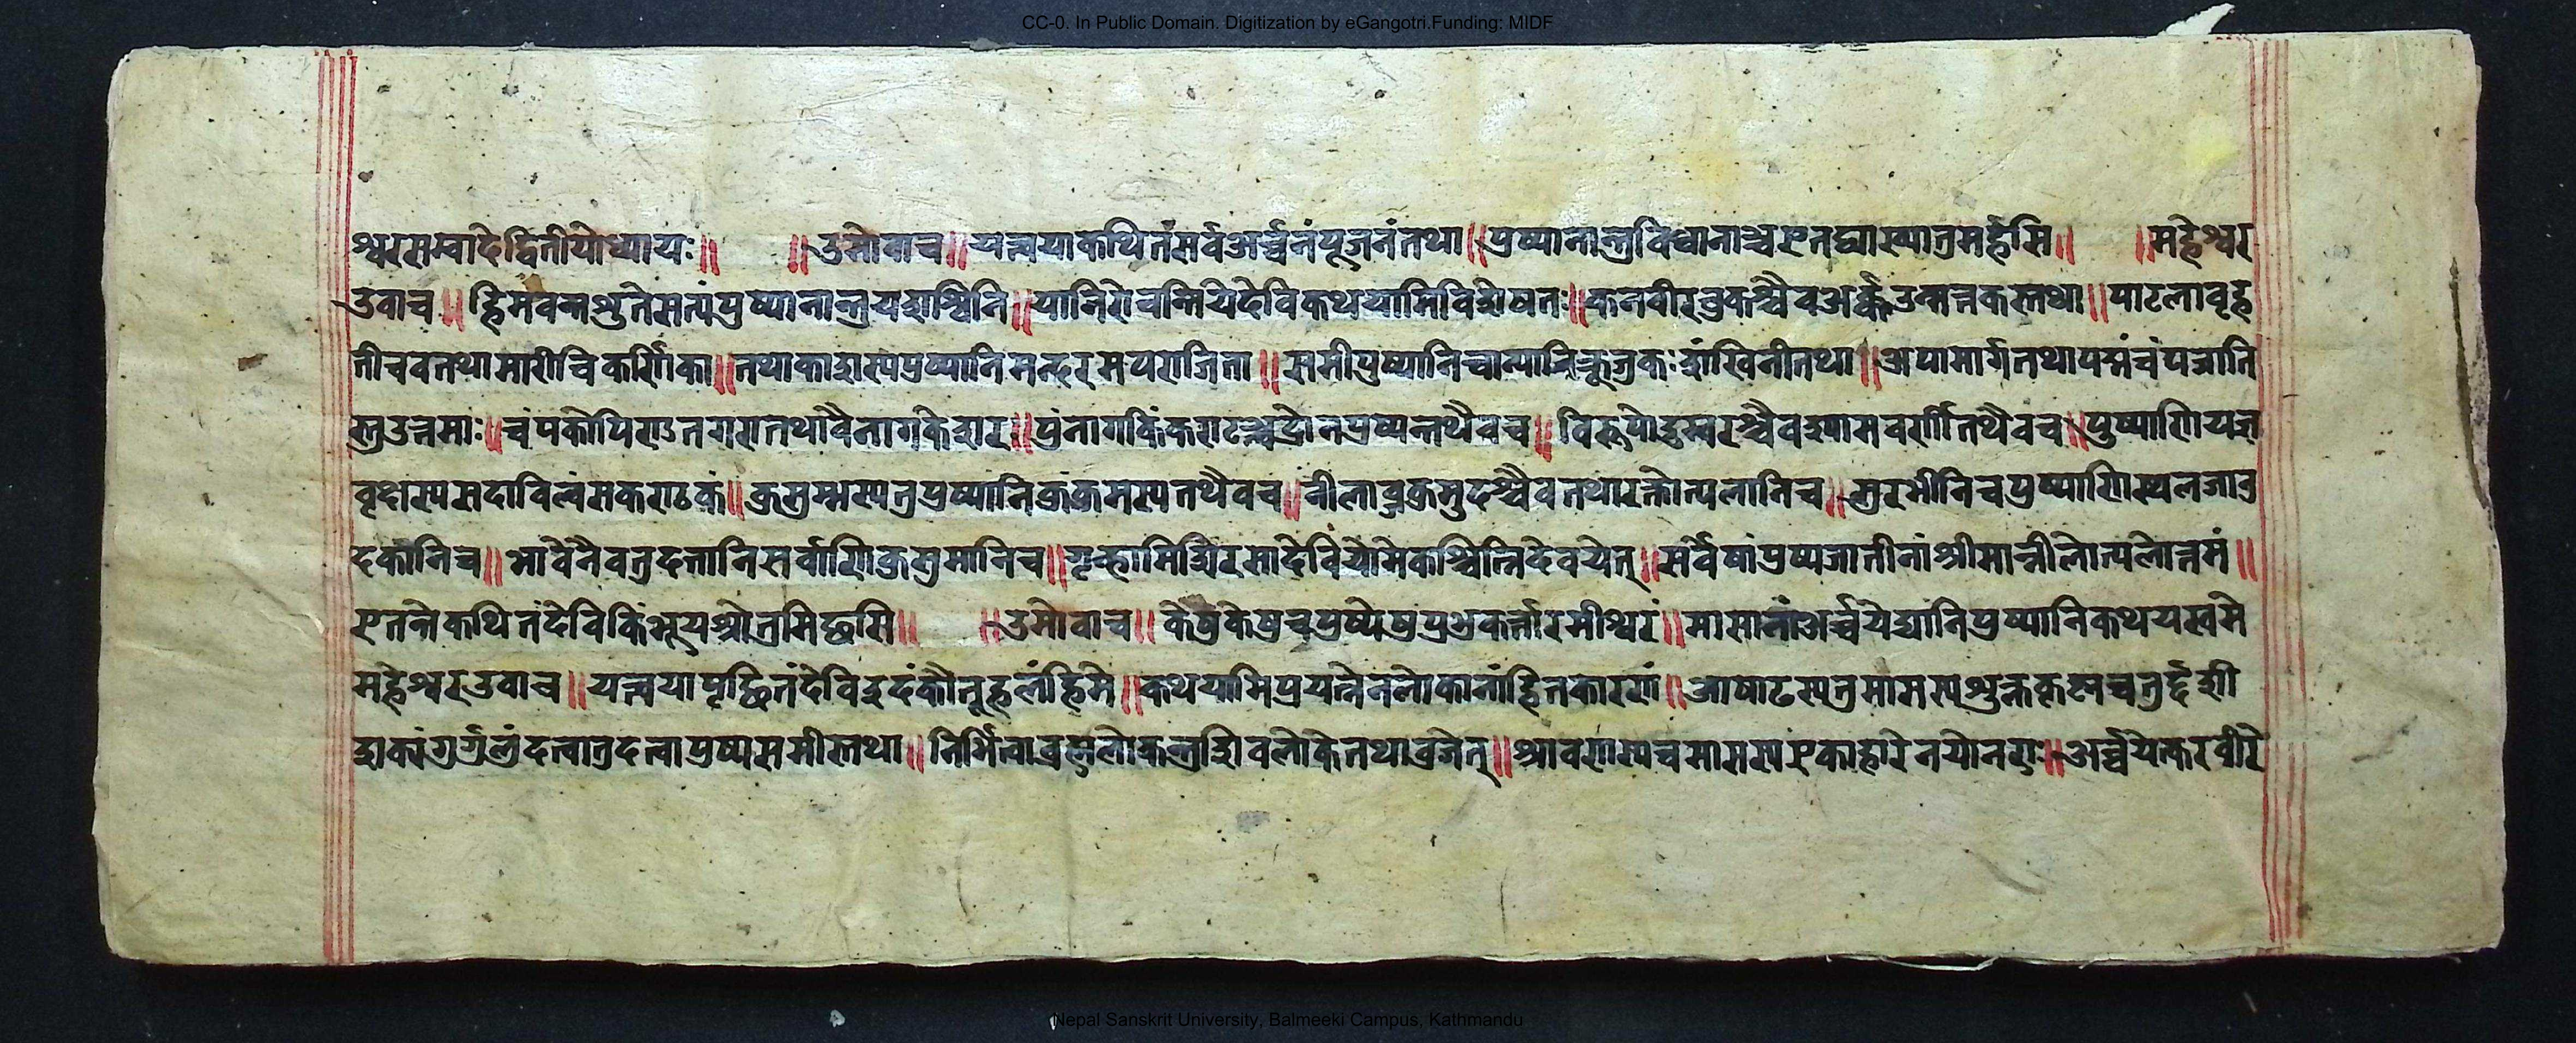 CC-0. In Public Domain. Digitization by eGangotri.Funding: MIDF
श्वरसम्वादेद्वितीयोध्यायः॥ ॥उमोवाच॥यत्त्वयाकथितंसर्वअर्च्चनंपूजनंतथा॥पुष्पानान्तुविधानाञ्चएतद्व्याख्यातुमर्हसि॥ ॥महेश्वर
उवाच॥हिमवन्तशुतेसत्यंपुष्पानान्तुयशश्विनि॥यानिरोचन्तियेदेविकथयामिविशेषतः॥कनवीरवुकश्चैवअर्क्कउन्मत्तकस्तथा॥पाटलावृह
तीचवतथामारीचिकर्णिका॥तथाकाशस्यपुष्पानिमन्दरमपराजिता॥समीपुष्पानिचान्यानिकूजकःशंखिनीतथा॥अपामार्गतथापद्मंचंपजाति
स्तुउत्तमाः॥चंपकोपिराऽतगरातथावैनागकेशरः॥पुंनागकिंकराटञ्चद्रोनपुष्पन्तथैवच॥विरूपोडुम्वरश्चैवश्यामवर्णीतथैवच॥पुष्पाणियज्ञ
वृक्षस्यसदाविल्वंसकराटकं॥कुसुम्भस्यतुपुष्पानिकुंकुमस्यतथैवच॥नीलावुकुसुदश्चैवतथारक्तोत्पलानिच॥सुरभीनिचपुष्पाणिस्थलजावु
दकानिच॥भावेनैवतुदत्तानिसर्वाणिकुसुमानिच॥गृह्णामिशिरसादेवियोमेकश्चिन्निदेवयेत्॥सर्वेषांपुष्पजातीनांश्रीमान्नीलोत्पलोत्तमं॥
एतत्तेकथितंदेविकिंभूयश्रोतुमिछसि॥ ॥उमोवाच॥केषुकेषुचपुष्पेषुप्रभुकर्त्तारमीश्वरं॥मासानांअर्च्चयेद्यानिपुष्पानिकथयस्वमे
महेश्वरउवाच॥यत्त्वयापृछितंदेविइदंकौतूहलंहिमे॥कथयामिप्रयत्नेनलोकानांहितकारणं॥आषाढस्यतुमासस्यशुक्लकृष्णचतुर्द्दशी
शक्यंगुर्गुलुंदत्वातुदत्वापुष्पसमीस्तथा॥निर्भित्वाव्रह्मलोकन्तुशिवलोकेतथाव्रजेत्॥श्रावणस्यचमासस्यएकाहारेनयोनरः॥अर्च्चयेत्करवीरै
Nepal Sanskrit University, Balmeeki Campus, Kathmandu